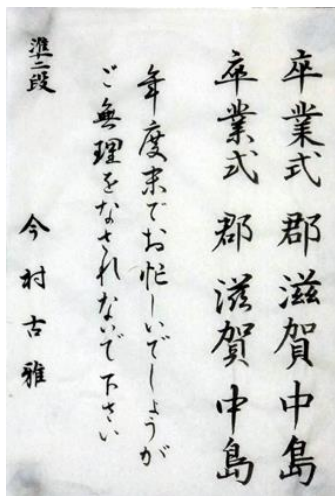 卒業式 郡 滋賀 中島
卒業式 郡 滋賀 中島
年度末でお忙しいでしょうが
ご無理をなされないで下さい
準二段 今村古雅